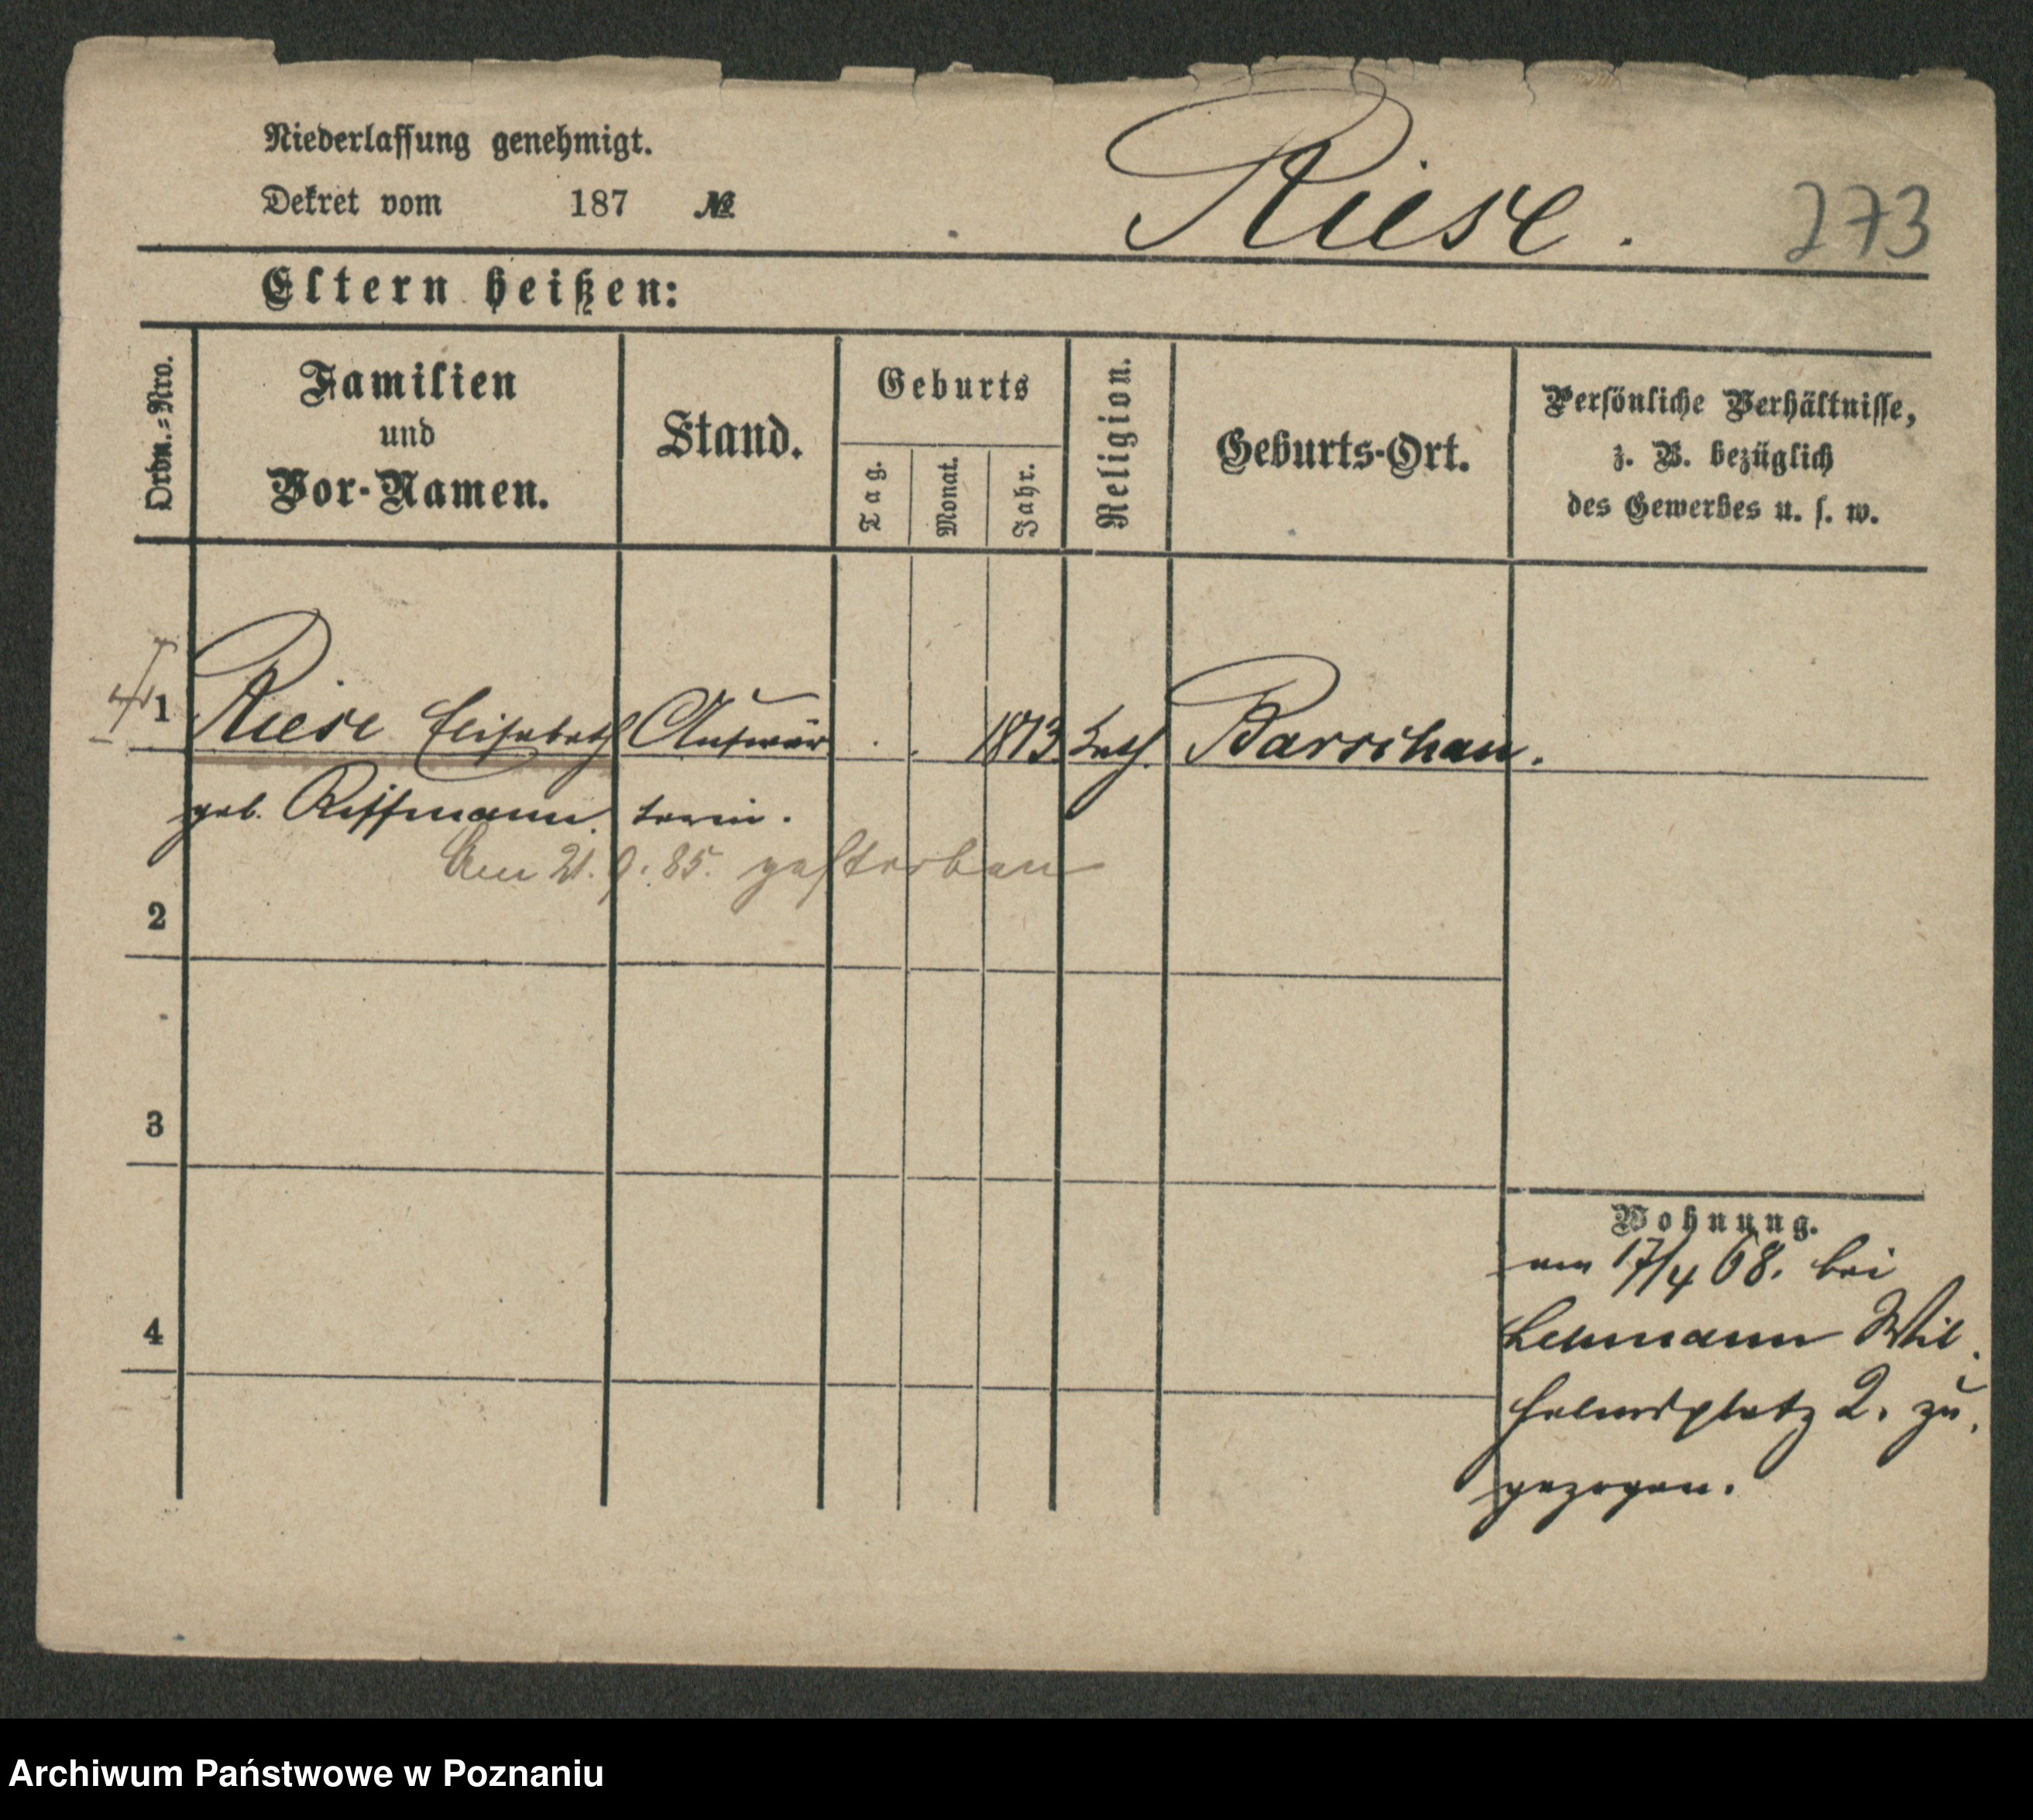 Niederlassung genehmigt.
Dekret vom 187 №
Riese. 273
Eltern heißen:
Ordn.-Nro.
Familien
und
Vor-Namen.
Stand.
Geburts
Tag.
Monat.
Jahr.
Religion.
Geburts-Ort.
Persönliche Verhältnisse,
z. B. bezüglich
des Gewerbes u. s. w.
1 Riese Elisabeth Aufwär 1813 kath.
geb. Riffmann. terin.
Am 21. 9. 85. gestorben
2
3
4
Wohnung.
am 17/4 68. bei
Lehmann Wil.
helmsplatz 2. zu.
gezogen.
Archiwum Państwowe w Poznaniu